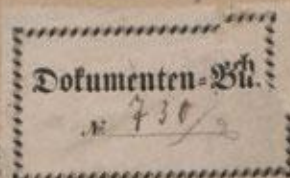 Dokumenten=Bch.
№ 730/2